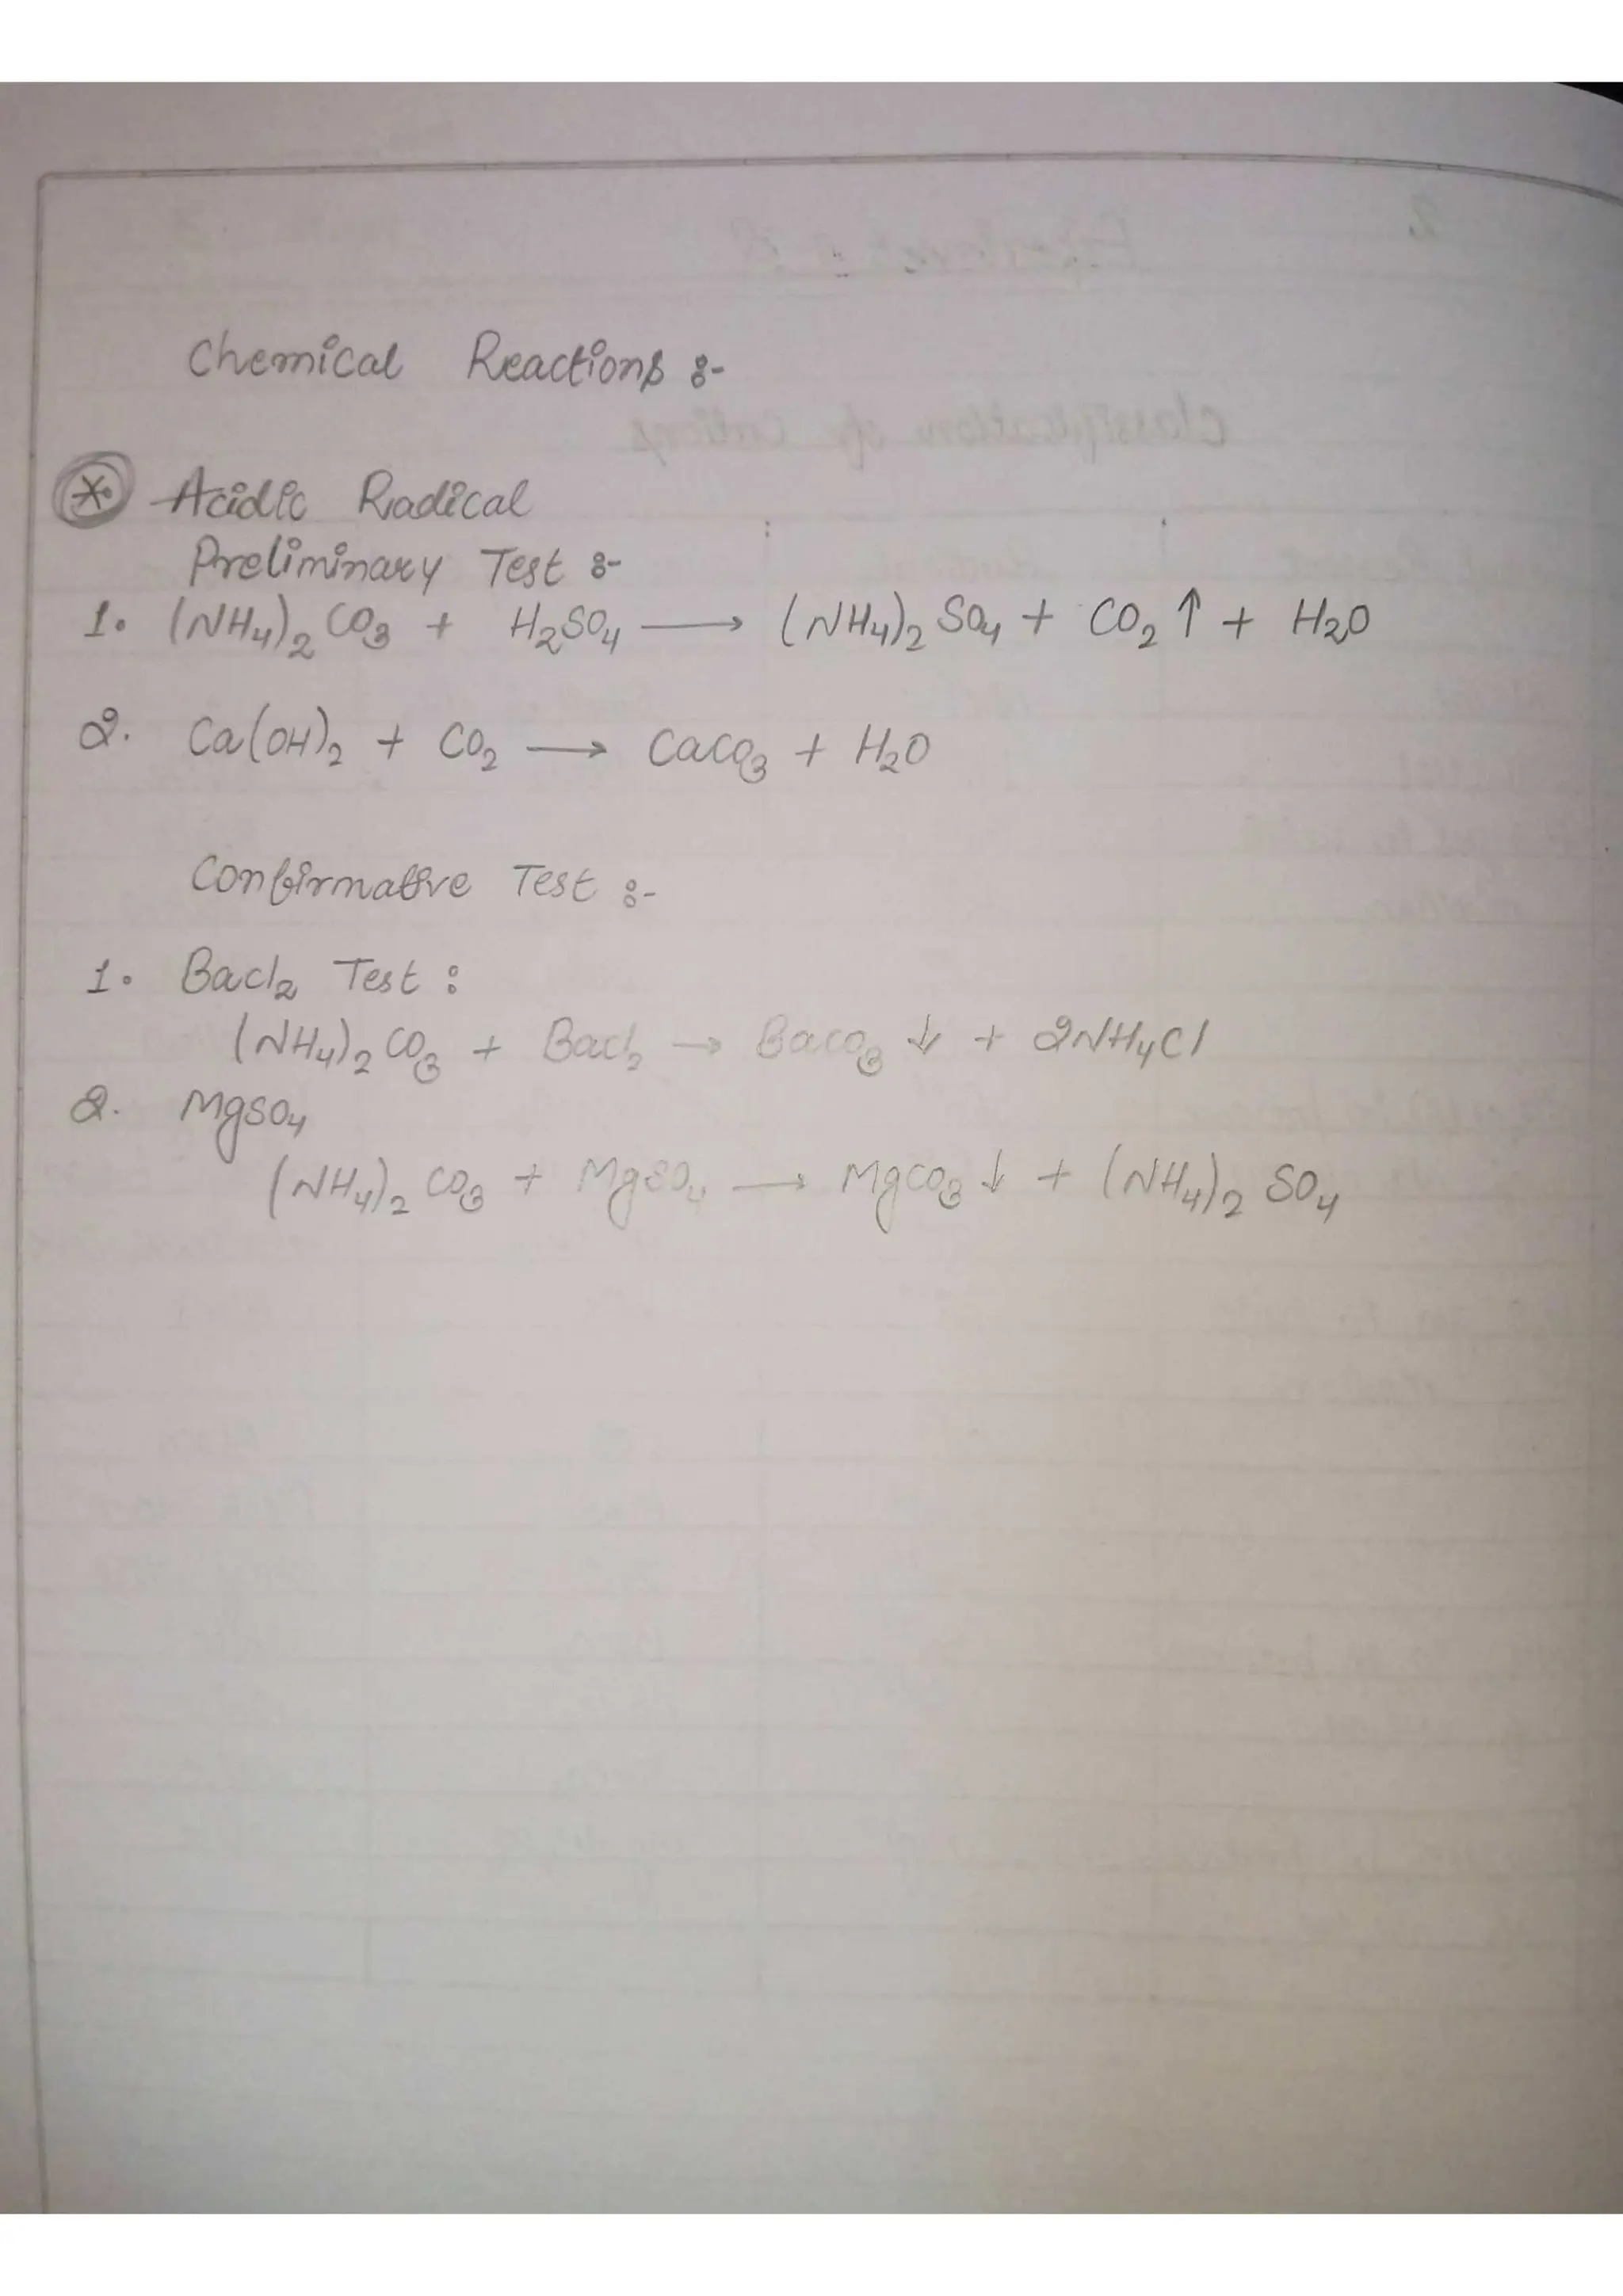 Chemical Reactions :-
* Acidic Radical
Preliminary Test :-
1. (NH₄)₂ CO₃ + H₂SO₄ ⟶ (NH₄)₂ SO₄ + CO₂ ↑ + H₂O
2. Ca(OH)₂ + CO₂ ⟶ CaCO₃ + H₂O
Confirmative Test :-
1. BaCl₂ Test :
(NH₄)₂ CO₃ + BaCl₂ → BaCO₃ ↓ + 2NH₄Cl
2. MgSO₄
(NH₄)₂ CO₃ + MgSO₄ ⟶ MgCO₃ ↓ + (NH₄)₂ SO₄